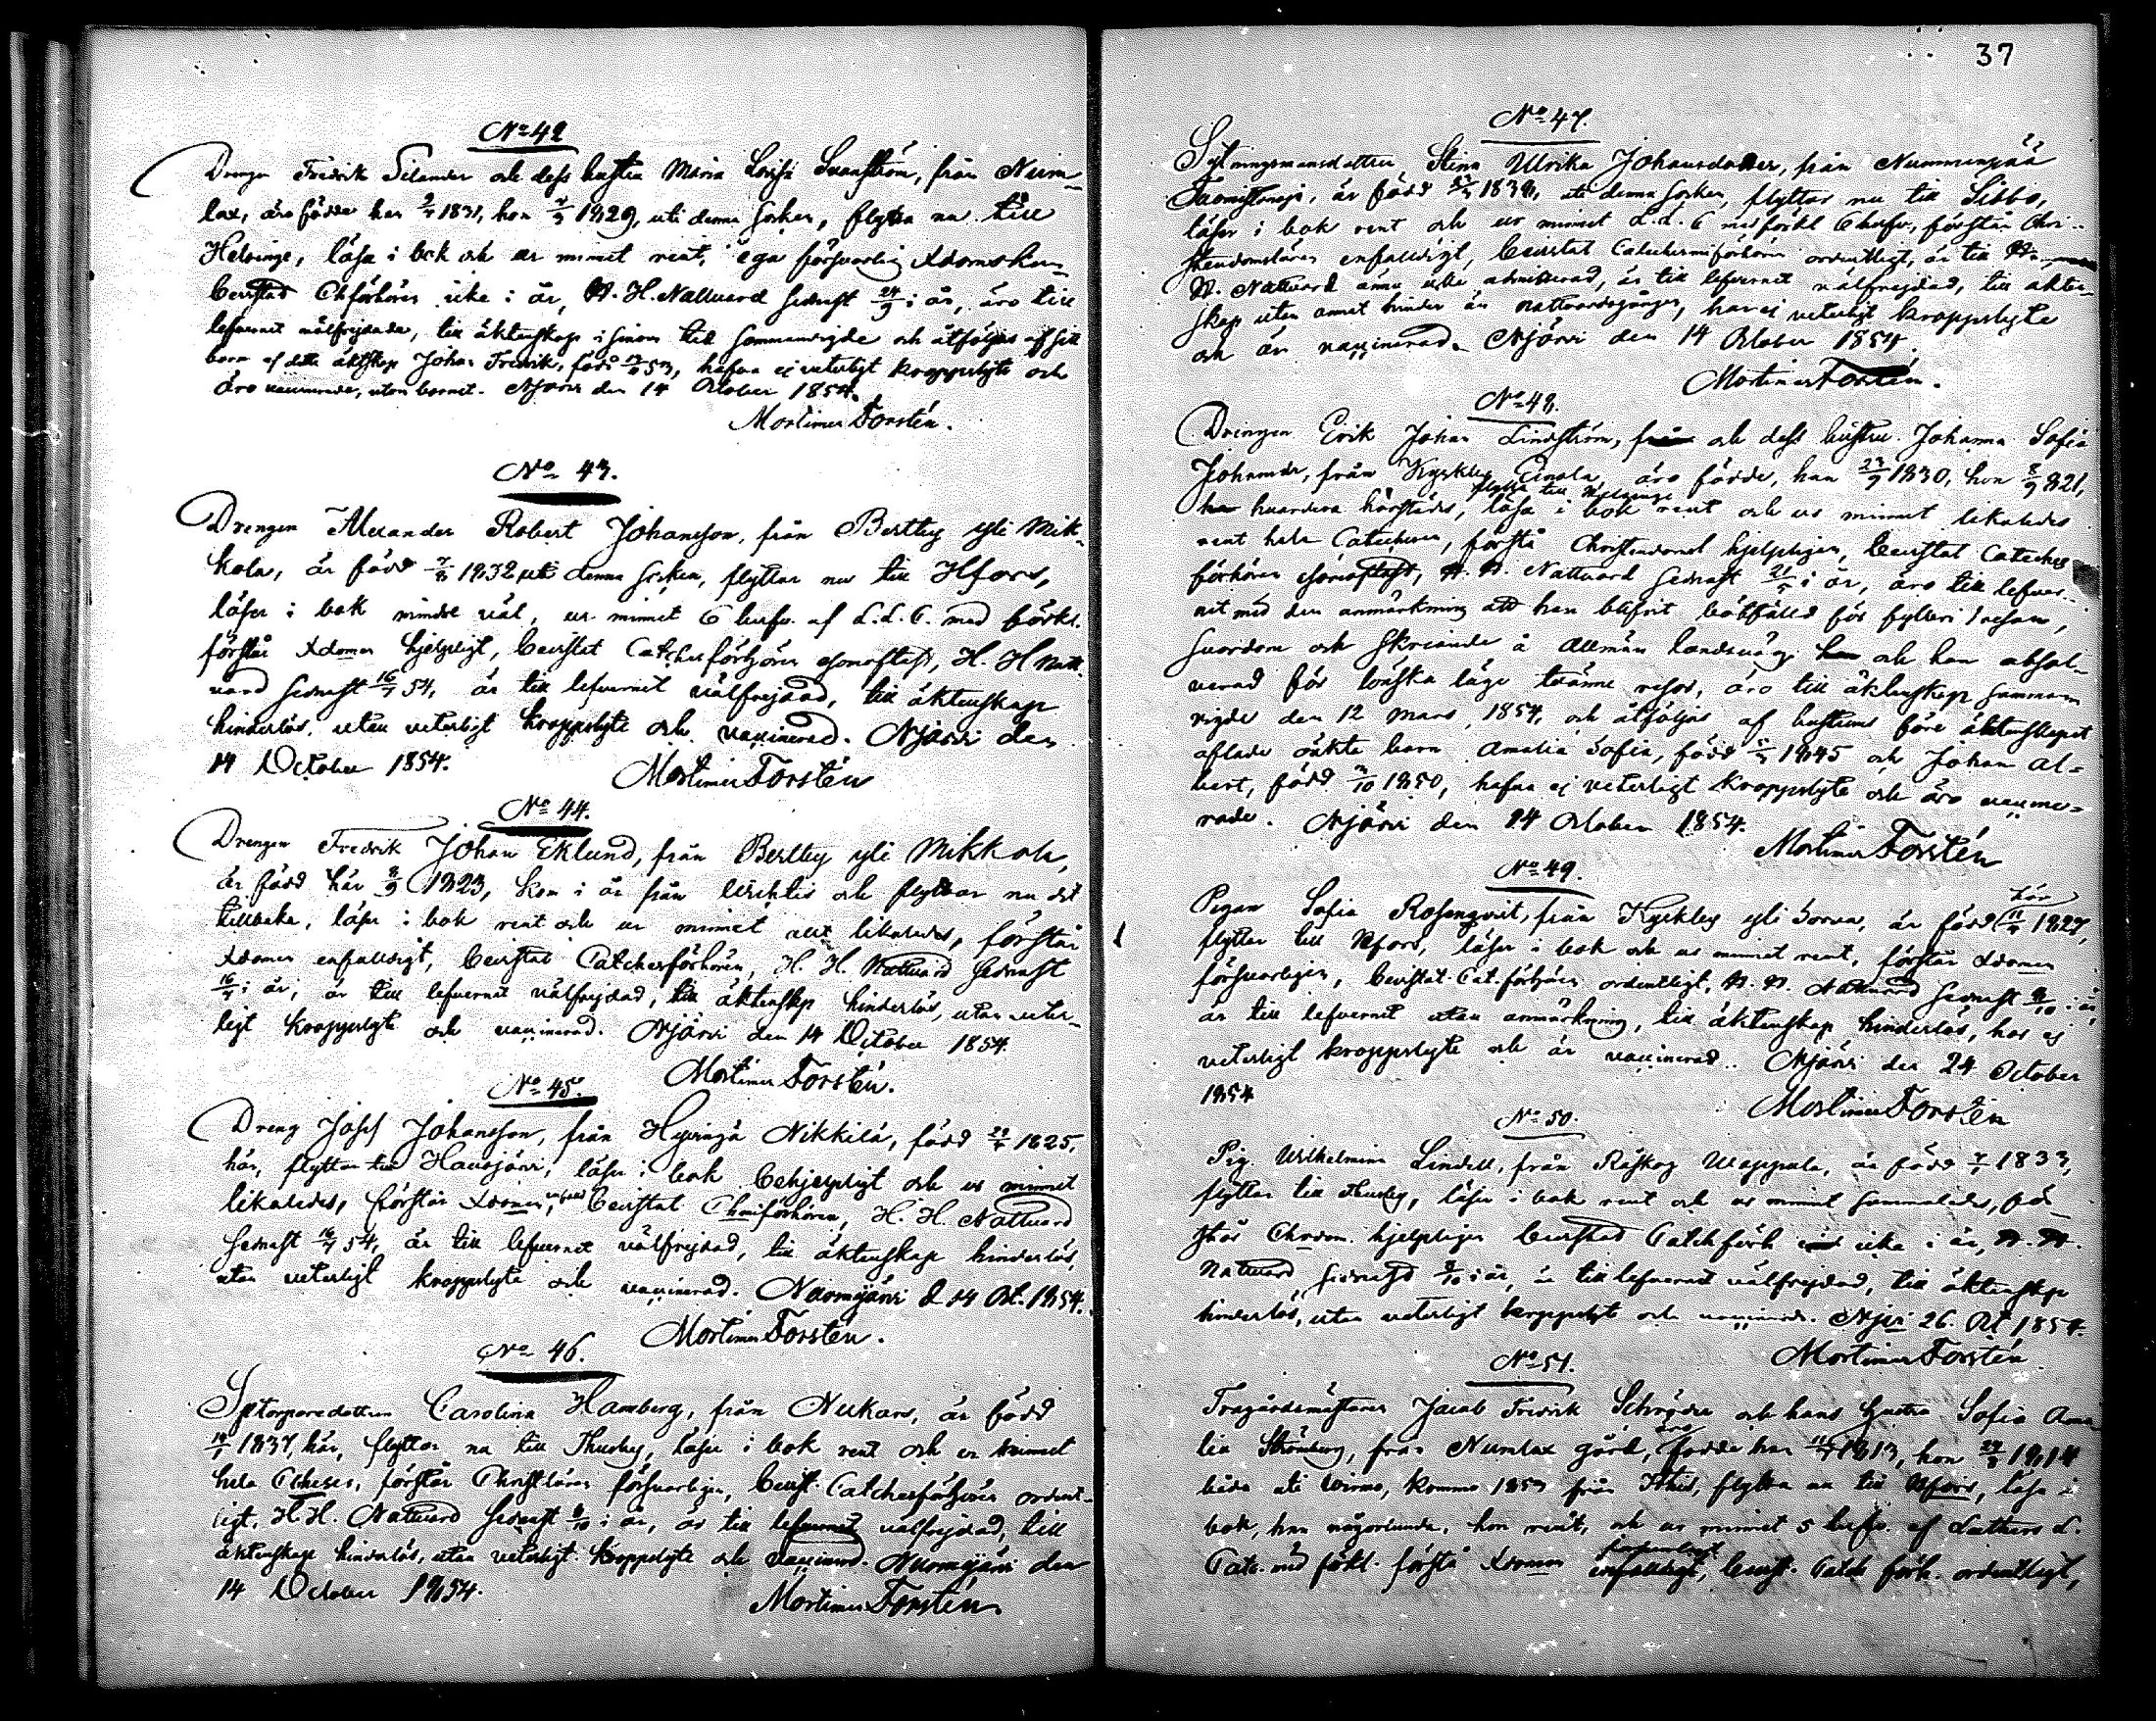 No 42
Drengen Fredrik Silander och dess hustru Maria Lovisa Svanström, från Num-
lax, äro födde han 1831, hon 1829, uti denna socken, flytta nu till
Helsinge, läsa i bok och ur minnet rent, ega försvarlig Xdomskun-
bevistad Chförhören icke i år, H. H. Nattvard sednast 24/9 i år, äro till
lefvernet välfrejdade, till äktenskap i sinom tid sammanvigde och åtföljas af sitt
barn af detta äktskap Johan Fredrik, född 53, hafva ej veterligt kroppslyte och
äro vaccinerade, utom barnet. Njärvi den 14 October 1854.
Mortimer Forstén.
No 43.
Drengen Alexander Robert Johansson, från Bertby yli Mik-
kola, är född 1832 uti denna socken, flyttar nu till Hfors,
läser i bok mindre väl, ur minnet 6 hufv. af L. L. C. med förkl.
förstår Xdomen hjelpligt, bevistat Catchesförhören som oftast, H. H Natt-
vard sednast 16/7 54, är till lefvernet välfrejdad, till äktenskap
hinderlös, utan veterligt kroppslyte och vaccinerad. Njärvi den
14 October 1854.
Mortimer Forstén
No 44.
Drengen Fredrik Johan Eklund, från Bertby yli Mikkola,
är född här 8/9 1823, kom i år från Wichtis och flyttar nu dit
tillbaka, läser i bok rent och ur minnet allt likaledes, förstår
Xdomen enfaldigt, bevistat Catchesförhören, H. H. Nattvard sednast
16/7 i år, är till lefvernet välfrejdad, till äktenskap hinderlös, utan veter-
ligt kroppslyte och vaccinerad. Njärvi den 14 October 1854.
Mortimer Forstén.
No 45.
Dreng Josef Johansson, från Hyvingä Nikkilä, född 1825,
här, flyttar till Hausjärvi, läser i bok behjelpligt och ur minnet
likaledes, förstår Xdomen, bevistat Chmiförhören, H. H. Nattvard
sednast 16/7 54, är till lefvernet välfrejdad, till äktenskap hinderlös,
utan veterligt kroppslyte och vaccinerad. Nurmijärvi d 14 Oct. 1854.
Mortimer Forstén.
No 46.
Carolina Hamberg, från Nukars, är född
1837, här, flyttar nu till Thusby, läser i bok rent och ur minnet
hela Ctheses, förstår Christläran försvarligen, bevist. Catchesförhören ordent-
ligt, H. H. Nattvard sednast 8/10 i år, är till lefvernet välfrejdad, till
äktenskap hinderlös, utan veterligt kroppslyte och vaccinerad. Nurmijärvi den
14 October 1854.
Mortimer Forstén.
37
No 47.
Sytningsmansdottren Stina Ulrika Johansdotter, från Nummenpää
är född 1838, uti denna socken, flyttar nu till Sibbo,
läser i bok rent och ur minnet L. L. C med förkl 6 hufv, förstår Chri-
stendomsläran enfaldigt, bevistat Catechesmiförhören ordentligt, är till
H. Nattvard ännu icke admitterad, är till lefvernet välfrejdad, till äkten-
skap utan annat hinder än nattvardsgången, har ej veterligt kroppslyte
och är vaccinerad. Njärvi den 14 October 1854.
Mortimer Forstén.
No 48.
Drengen Erik Johan Lindström, från och dess hustru Johanna Sofia
Johansdr, från Kyrkby Einola, äro födde, han 23/9 1830, hon 8/9 821,
han hvardera härstädes, flytta till Helsinge läsa i bok rent och ur minnet likaledes
rent hela Catechesen, förstå Christendomet hjelpligen, bevistat Cateches
förhören som oftast, H. H. Nattvard sednast 21/5 i år, äro till lefver-
net med den anmärkning att han blifvit bötfälld för fylleri 1 resan,
svordom och skriande å allmän landsväg han och hon absol-
verad för lönska läge tvänne resor, äro till äktenskap samman
vigde den 12 Mars 1854, och åtföljas af hustruns före äktenskapet
aflade oäkta barn Amalia Sofia, född 1845 och Johan Al-
bert, född 1850, hafva ej veterligt kroppslyte och äro vaccine-
rade. Njärvi den 14 October 1854.
Mortimer Forstén
No 49.
Pigan Sofia Rosenqvist, från Kyrkby yli Sorva, är född här 11/4 1827,
flyttar till Hfors, läser i bok och ur minnet rent, förstår Xdomen
försvarligen, bevistat Cat. förhören ordentligt, H. H. Nattvard sednast 8/10 i år,
är till lefvernet utan anmärkning, till äktenskap hinderlös, har ej
veterligt kroppslyte och är vaccinerad. Njärvi den 24 October
1854
Mortimer Forstén
No 50.
Pig. Wilhelmina Lindell, från Röskog Uappala, är född 1833,
flyttar till Thusby, läser i bok rent och ur minnet sammaledes, för-
står Chrdom. hjelpligen bevistad Catchförh icke i år, H. H.
Nattvard sednast 8/10 i år, är till lefvernet välfrejdad, till äktenskap
hinderlös, utan veterligt kroppslyte och vaccinerad. Njrvi 26. Oct 1854.
Mortimer Forstén.
No 51.
Trägårdsmästaren Jacob Fredrik Schröder och hans hustru Sofia Ama-
lia Strömberg, från Numlax gård, äro födde han 1813, hon 1814
båda uti Wirmo, kommo 1853 från flytta nu till Hfors, läsa i
bok, han någorlunda, hon rent, och ur minnet 5 hufv. af Luthers L.
Catc. med förkl. förstå Xdomen enfaldigt, bevist. Catch förh. ordentligt,